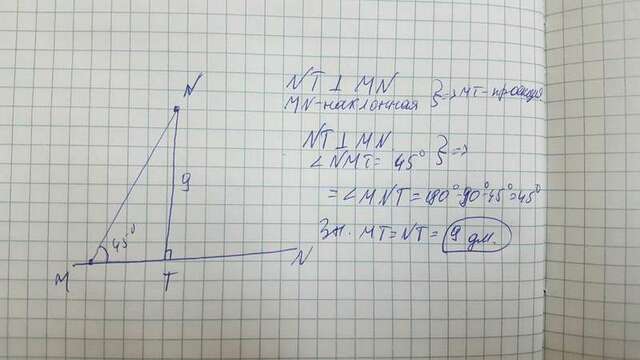 N
9
45°
M
T
N
NT ⊥ MN
MN-наклонная } => MT-проекция
NT ⊥ MN
∠NMT = 45° } =>
= ∠MNT = 180°-90°-45°=45°
Зн. MT = NT = 9 дм.